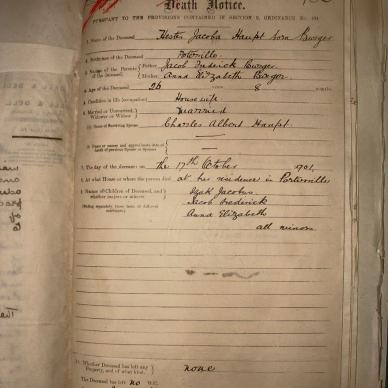 Death Notice.
PURSUANT TO THE PROVISIONS CONTAINED IN SECTION 9, ORDINANCE No. 104
1. Name of the Deceased Hester Jacoba Haupt born Burger
2. Birthplace of the Deceased Porterville
3. Names of the Parents of the Deceased { Father Jacob Frederick Burger
Mother Anna Elizabeth Burger
4. Age of the Deceased 26 years 8 months
5. Condition in life (occupation) Housewife
6. Married or Unmarried, Widower or Widow Married
Name of Surviving Spouse Charles Albert Haupt
7. The day of the decease on the 17th October 1901
8. At what House or where the person died at her residence in Porterville
9. Names of Children of Deceased, and whether majors or minors Izak Jacobus
Jacob Frederick
Anna Elizabeth
all minors
Whether Deceased has left any Property, and of what kind. none
The Deceased has left no Will.